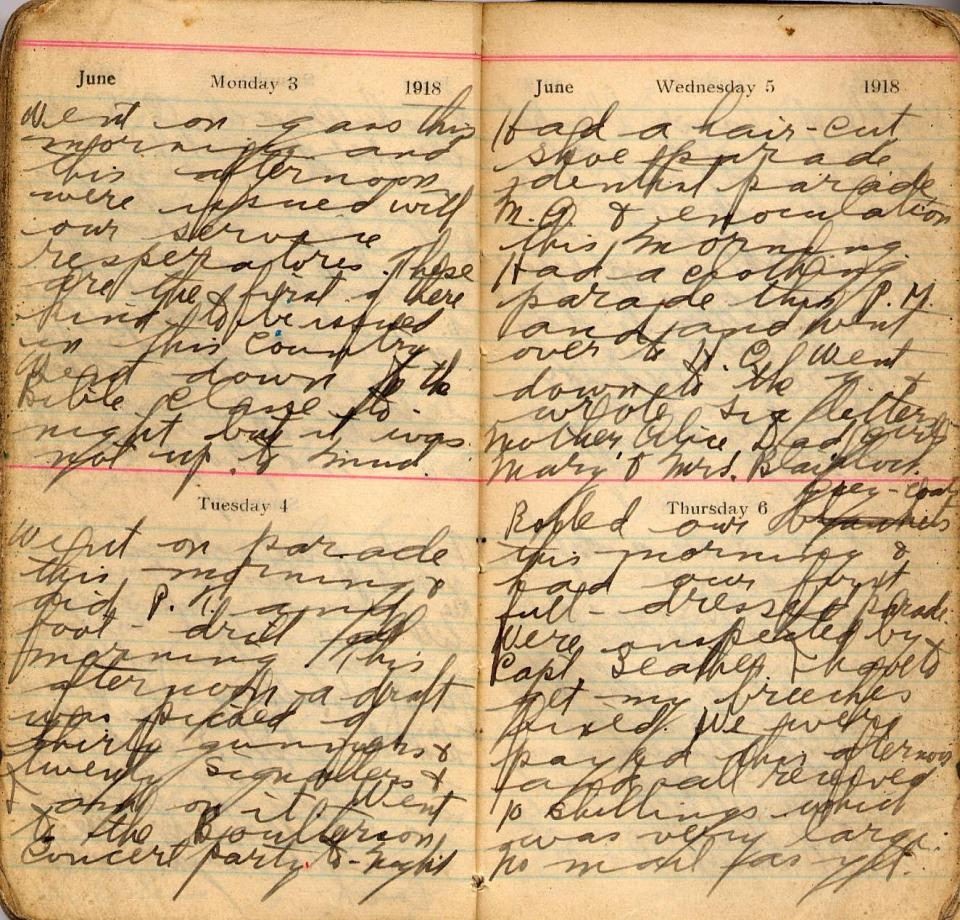 June Monday 3 1918
Went on gass this
morning and
this afternoon
were issued will
our service
resperatores. These
are the first of there
kind to be issued
in this country
Went down to the
Bible Class to-
night but it was
not up to mind.
Tuesday 4
Went on parade
this morning &
did P. T. and
foot-drill all
morning This
afternoon a draft
was picked of
thirty gunners &
twenty signallers &
I and on it Went
to the
Concert party to-night
June Wednesday 5 1918
Had a hair-cut
shoe parade
dentist parade
M.O. & enoculation
this morning
Had a clothing
parade this P.M.
and and went
over to H.Q. Went
down to the Y. &
wrote six letters
Mother Alice Dad girls
Mary & Mrs.
grey-coats
Thursday 6
Rolled our
this morning &
had our first
full-dress parade
Were inspected by
Capt. I have to
get my breeches
fixed. We were
payed this afternoon
and all received
10 shillings which
was very large.
No mail as yet.